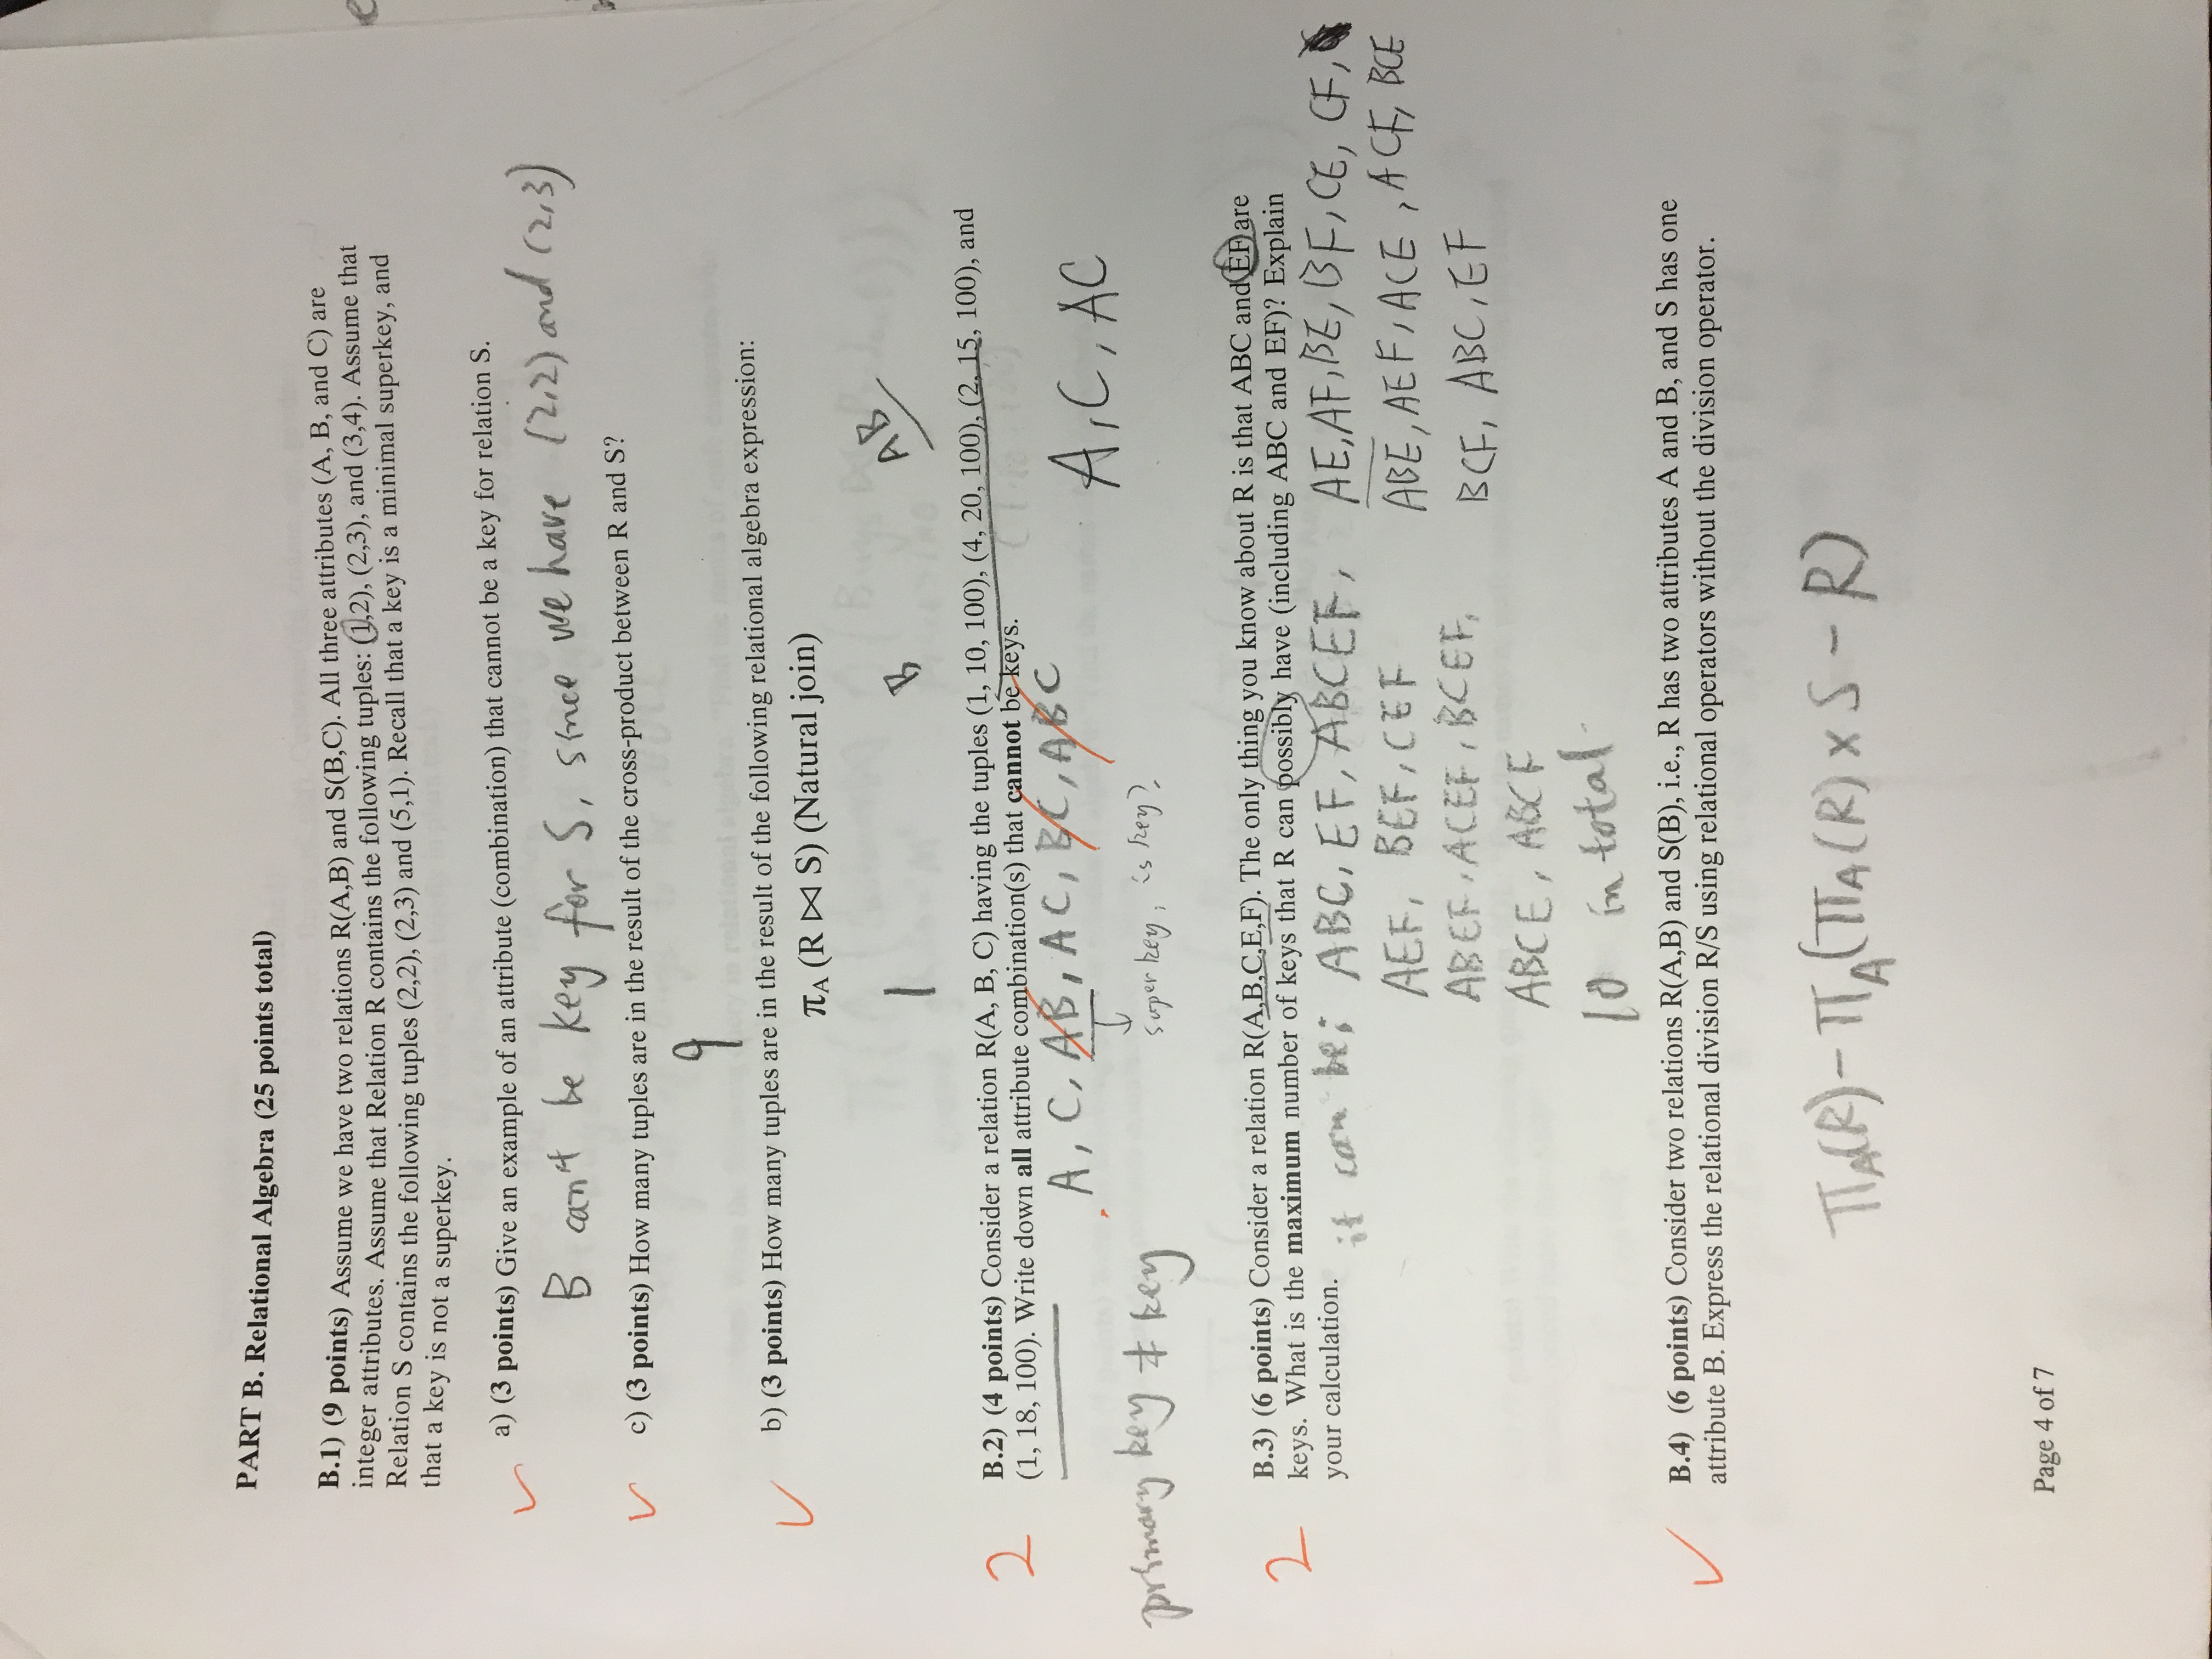 PART B. Relational Algebra (25 points total)
B.1) (9 points) Assume we have two relations R(A,B) and S(B,C). All three attributes (A, B, and C) are
integer attributes. Assume that Relation R contains the following tuples: (1,2), (2,3), and (3,4). Assume that
Relation S contains the following tuples (2,2), (2,3) and (5,1). Recall that a key is a minimal superkey, and
that a key is not a superkey.
a) (3 points) Give an example of an attribute (combination) that cannot be a key for relation S.
B can't be key for S, since we have (2,2) and (2,3)
c) (3 points) How many tuples are in the result of the cross-product between R and S?
9
b) (3 points) How many tuples are in the result of the following relational algebra expression:
πA (R ⋈ S) (Natural join)
1 B AB
2 B.2) (4 points) Consider a relation R(A, B, C) having the tuples (1, 10, 100), (4, 20, 100), (2, 15, 100), and
(1, 18, 100). Write down all attribute combination(s) that cannot be keys.
A, C, AB, AC, BC, ABC
A, C, AC
primary key ≠ key
super key, is key?
2 B.3) (6 points) Consider a relation R(A,B,C,E,F). The only thing you know about R is that ABC and EF are
keys. What is the maximum number of keys that R can possibly have (including ABC and EF)? Explain
your calculation.
it can be; ABC, EF, ABCEF,
AEF, BEF, CEF
ABEF, ACEF, BCEF,
ABCE, ABCF
10 in total.
AE, AF, BE, BF, CE, CF,
ABE, AEF, ACE, ACF, BCE
BCF, ABC, EF
B.4) (6 points) Consider two relations R(A,B) and S(B), i.e., R has two attributes A and B, and S has one
attribute B. Express the relational division R/S using relational operators without the division operator.
πA(R) − πA(πA(R) × S − R)
Page 4 of 7